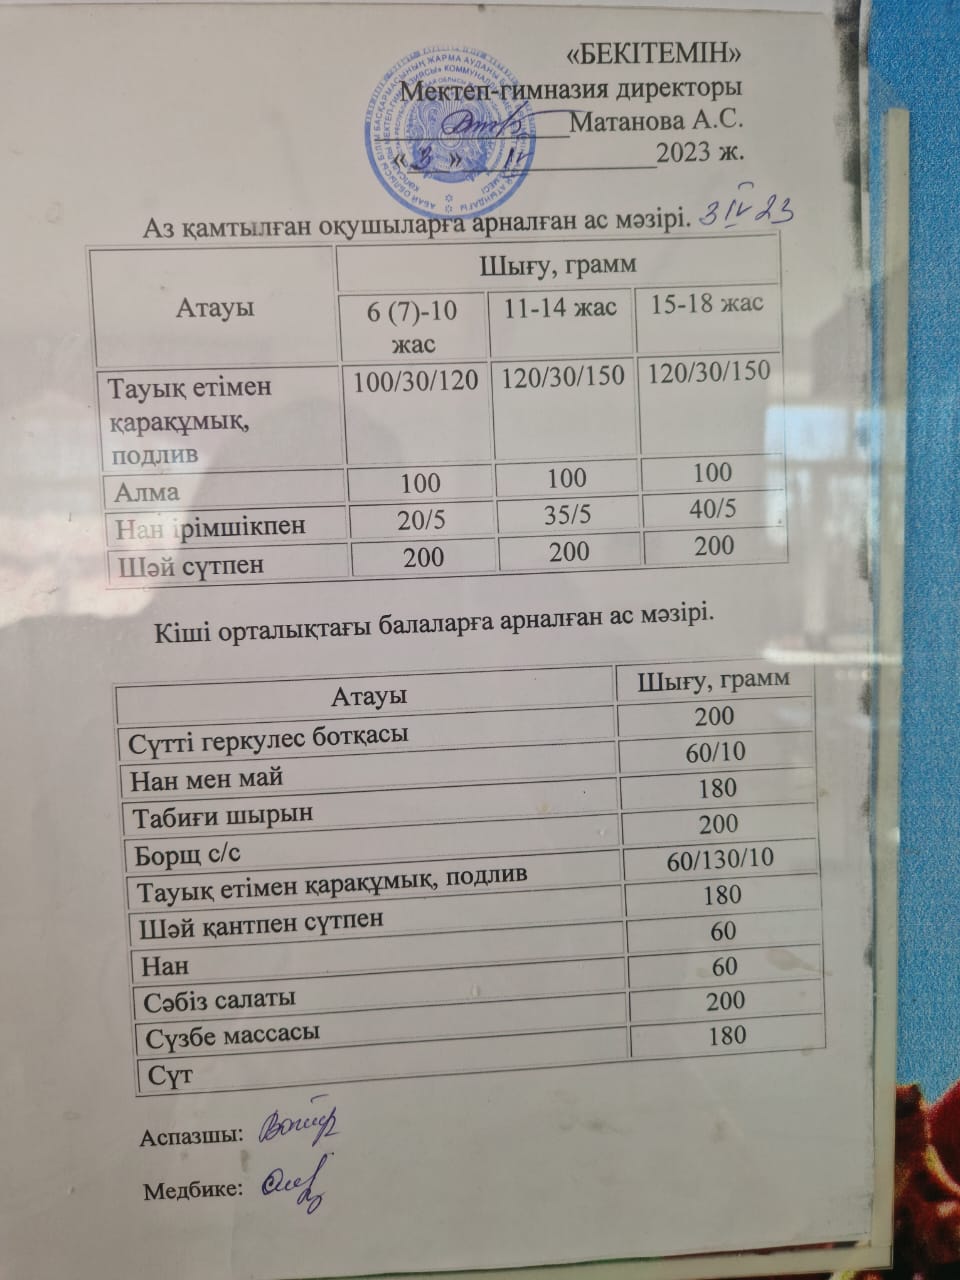 «БЕКІТЕМІН»
Мектеп-гимназия директоры
Матанова А.С.
«3» IV 2023 ж.
Аз қамтылған оқушыларға арналған ас мәзірі. 3 IV 23
Атауы Шығу, грамм
6 (7)-10 жас 11-14 жас 15-18 жас
Тауық етімен қарақұмық, подлив 100/30/120 120/30/150 120/30/150
Алма 100 100 100
Нан ірімшікпен 20/5 35/5 40/5
Шәй сүтпен 200 200 200
Кіші орталықтағы балаларға арналған ас мәзірі.
Атауы Шығу, грамм
Сүтті геркулес ботқасы 200
Нан мен май 60/10
Табиғи шырын 180
Борщ с/с 200
Тауық етімен қарақұмық, подлив 60/130/10
Шәй қантпен сүтпен 180
Нан 60
Сәбіз салаты 60
Сүзбе массасы 200
Сүт 180
Аспазшы:
Медбике: